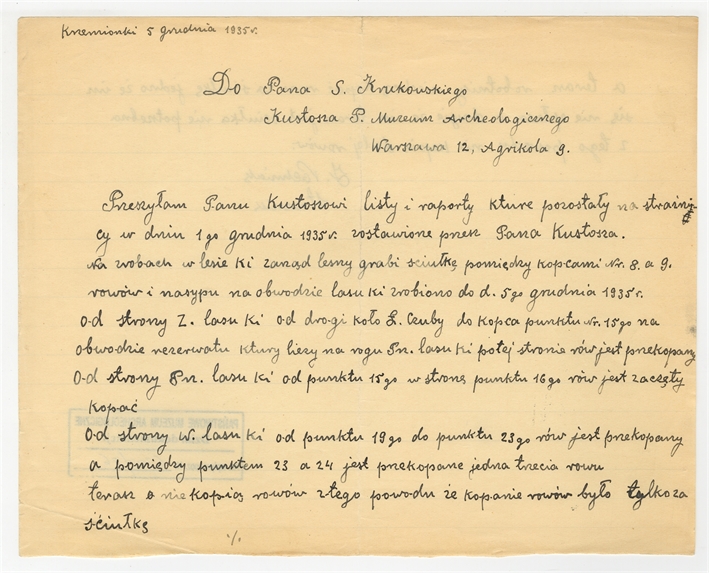 Krzemionki 5 grudnia 1935 r.
Do Pana S. Krukowskiego
Kustosza P. Muzeum Archeologicznego
Warszawa 12, Agrikola 9.
Preszyłam Panu Kustoszowi listy i raporty kture pozostały na strażni-
cy w dniu 1go grudnia 1935 r. zostawione przes Pana Kustosza.
Na zrobach w lesie ki zarząd lesny grabi sciułkę pomiędzy kopcami Nr. 8. a 9.
rowów i nasypu na obwodzie lasu ki zrobiono do d. 5go grudnia 1935 r.
Od strony Z. lasu ki od drogi koło Ł. Czuby do kopca punktu Nr. 15go na
obwodzie rezerwatu ktury liezy na rogu Pn. lasu ki potej stronie rów jest przekopany
Od strony Pn. lasu ki od punktu 15go w stronę punktu 16go rów jest zaczęty
kopać
Od strony W. lasu ki od punktu 19go do punktu 23go rów jest przekopany
a pomiędzy punktem 23 a 24 jest przekopane jedna trzecia rowu
teraz nie kopią rowów z tego powodu że kopanie rowów było tylko za
sciułkę
./.